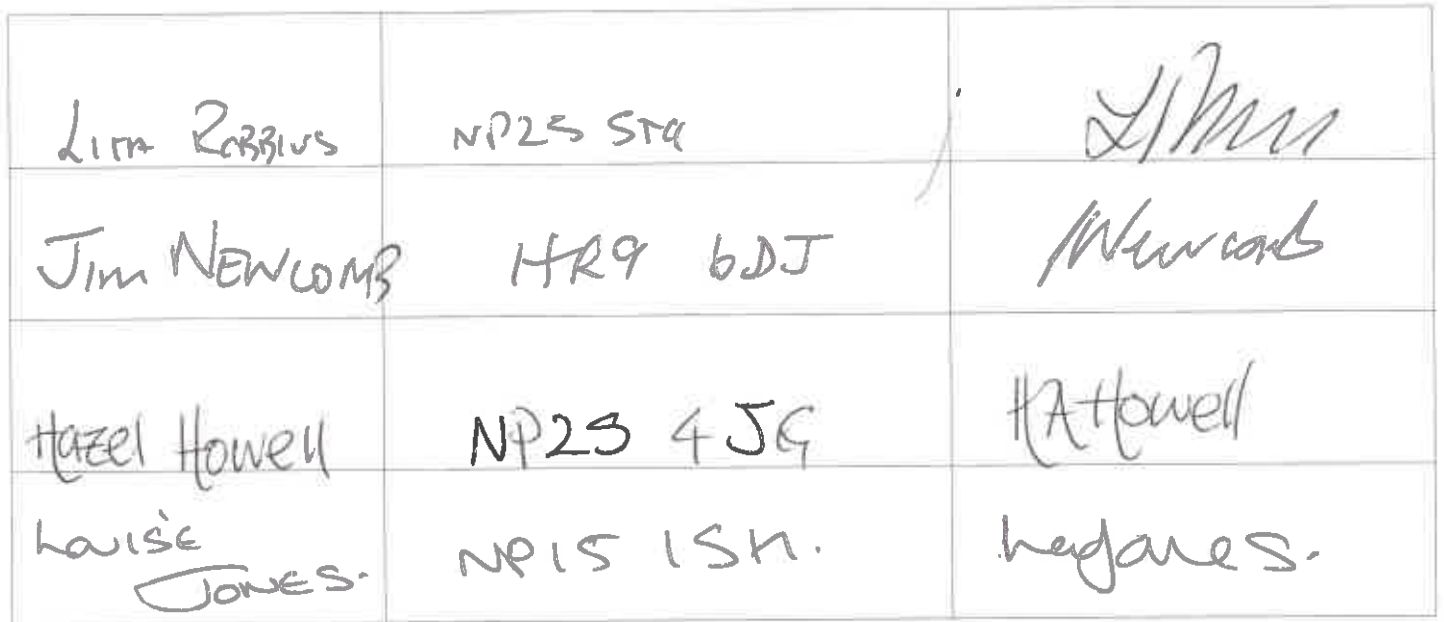 ROBBINS NP25
Jim NEWCOMB HR9 6DJ Newcomb
Hazel Howell NP25 4JG HAHowell
Louise NP15 1SH.
JONES.